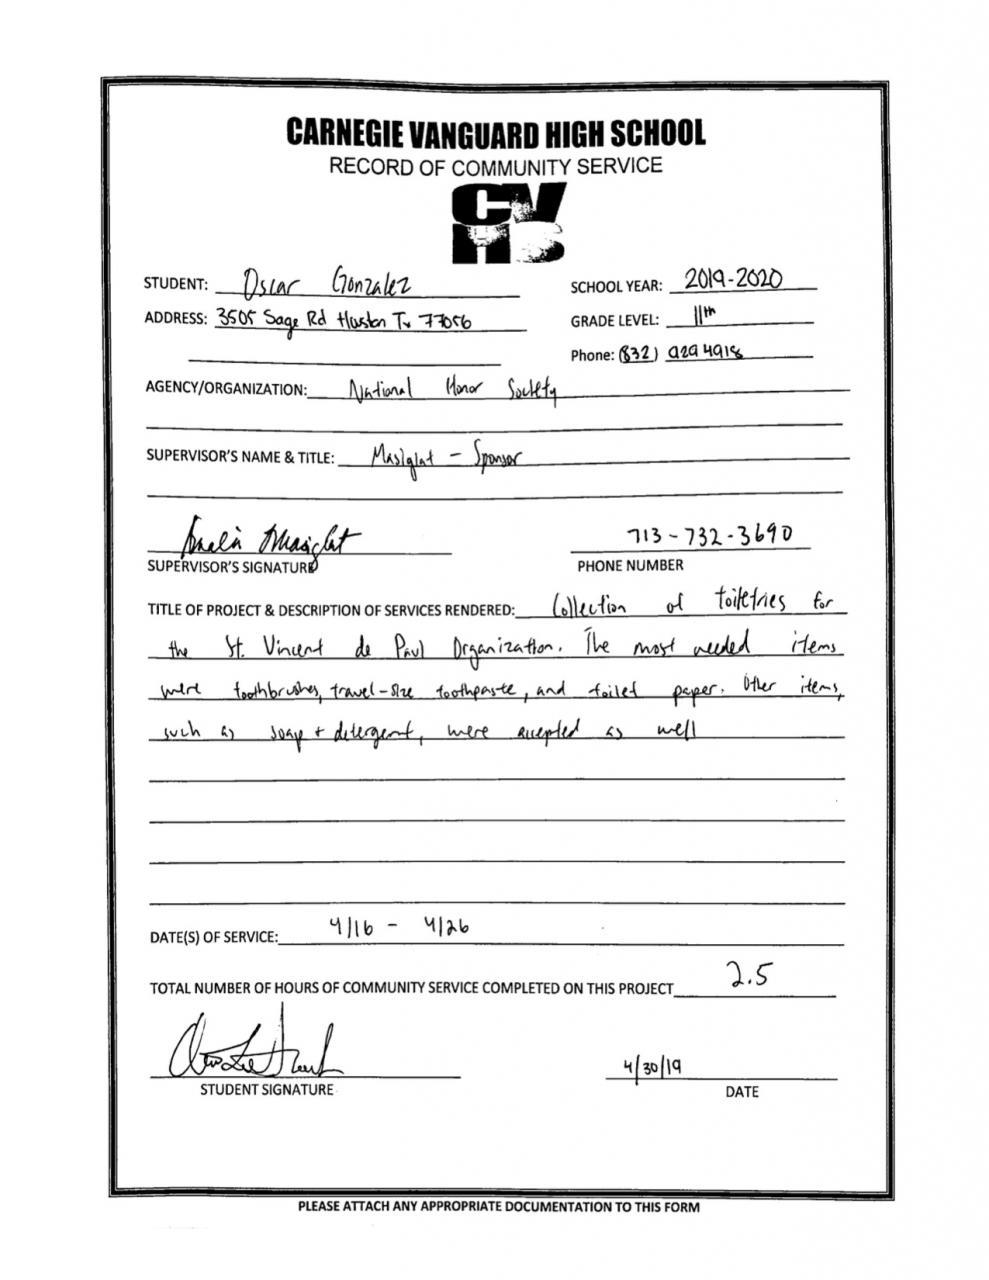 CARNEGIE VANGUARD HIGH SCHOOL
RECORD OF COMMUNITY SERVICE
CV
HS
STUDENT: Oscar Gonzalez SCHOOL YEAR: 2019-2020
ADDRESS: 3505 Sage Rd Houston Tx 77056 GRADE LEVEL: 11th
Phone: (832) 929 4918
AGENCY/ORGANIZATION: National Honor Society
SUPERVISOR'S NAME & TITLE: Masiglat - Sponsor
Masiglat 713-732-3690
SUPERVISOR'S SIGNATURE PHONE NUMBER
TITLE OF PROJECT & DESCRIPTION OF SERVICES RENDERED: Collection of toiletries for
the St. Vincent de Paul Organization. The most needed items
were toothbrushes, travel-size toothpaste, and toilet paper. Other items,
such as soap + detergent, were accepted as well
DATE(S) OF SERVICE: 4/16 - 4/26
TOTAL NUMBER OF HOURS OF COMMUNITY SERVICE COMPLETED ON THIS PROJECT 2.5
4/30/19
STUDENT SIGNATURE DATE
PLEASE ATTACH ANY APPROPRIATE DOCUMENTATION TO THIS FORM